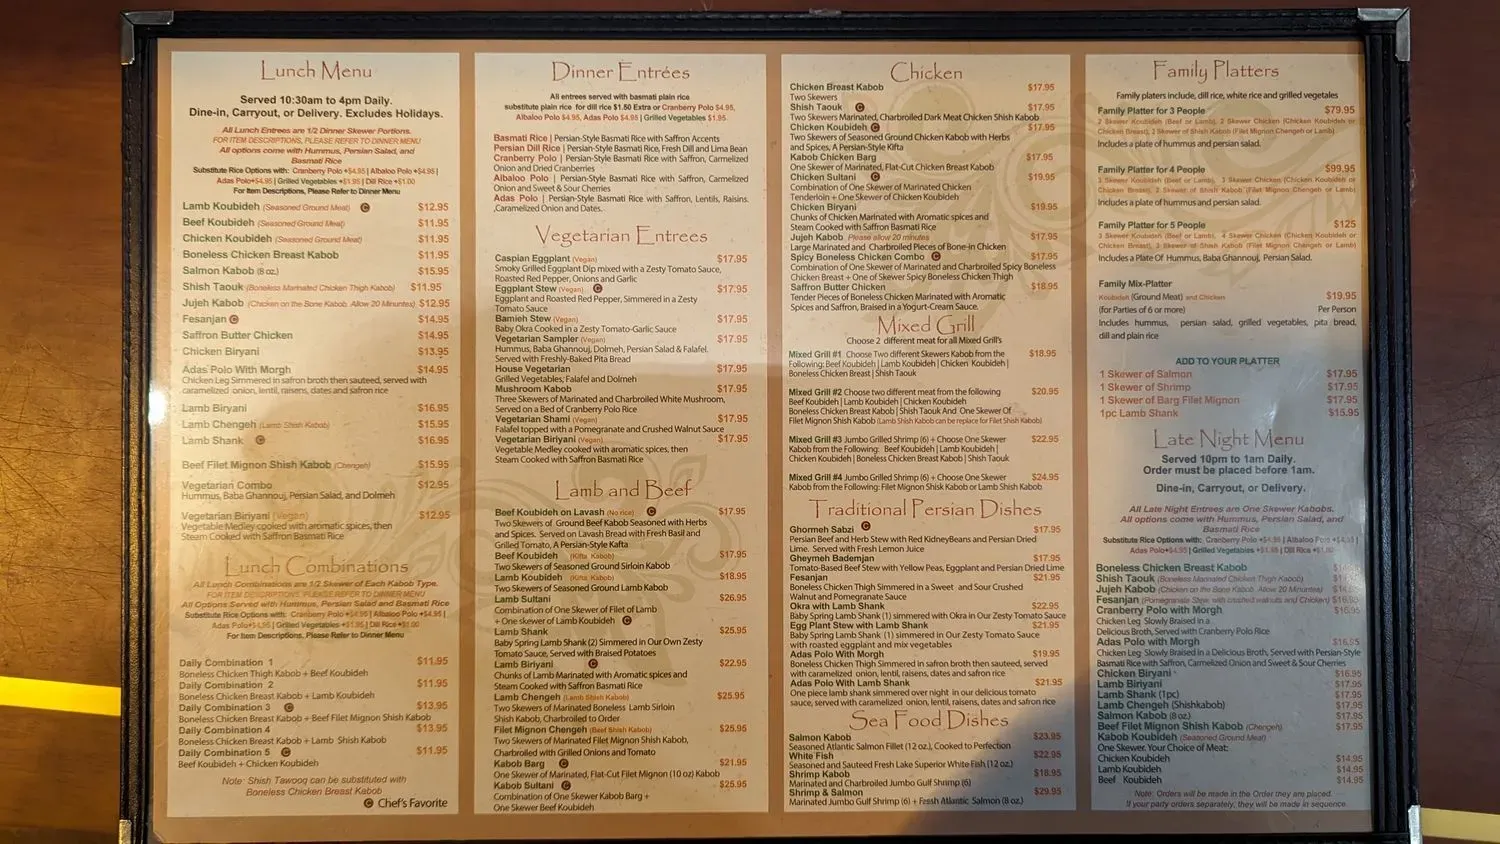 Lunch Menu
Served 10:30am to 4pm Daily.
Dine-in, Carryout, or Delivery. Excludes Holidays.
All Lunch Entrees are 1/2 Dinner Skewer Portions.
FOR ITEM DESCRIPTIONS, PLEASE REFER TO DINNER MENU
All options come with Hummus, Persian Salad, and
Basmati Rice
Substitute Rice Options with: Cranberry Polo +$4.95 | Albaloo Polo +$4.95 |
Adas Polo+$4.95 | Grilled Vegetables +$1.95 | Dill Rice +$1.00
For Item Descriptions, Please Refer to Dinner Menu
Lamb Koubideh (Seasoned Ground Meat) C $12.95
Beef Koubideh (Seasoned Ground Meat) $11.95
Chicken Koubideh (Seasoned Ground Meat) $11.95
Boneless Chicken Breast Kabob $11.95
Salmon Kabob (8 oz.) $15.95
Shish Taouk (Boneless Marinated Chicken Thigh Kabob) $11.95
Jujeh Kabob (Chicken on the Bone Kabob. Allow 20 Minuntes) $12.95
Fesanjan C $14.95
Saffron Butter Chicken $14.95
Chicken Biryani $13.95
Adas Polo With Morgh $14.95
Chicken Leg Simmered in safron broth then sauteed, served with
caramelized onion, lentil, raisens, dates and safron rice
Lamb Biryani $16.95
Lamb Chengeh (Lamb Shish Kabob) $15.95
Lamb Shank C $16.95
Beef Filet Mignon Shish Kabob (Chengeh) $15.95
Vegetarian Combo $12.95
Hummus, Baba Ghannouj, Persian Salad, and Dolmeh
Vegetarian Biriyani (Vegan) $12.95
Vegetable Medley cooked with aromatic spices, then
Steam Cooked with Saffron Basmati Rice
Lunch Combinations
All Lunch Combinations are 1/2 Skewer of Each Kabob Type.
FOR ITEM DESCRIPTIONS, PLEASE REFER TO DINNER MENU
All Options Served with Hummus, Persian Salad and Basmati Rice
Substitute Rice Options with: Cranberry Polo +$4.95 | Albaloo Polo +$4.95 |
Adas Polo+$4.95 | Grilled Vegetables +$1.95 | Dill Rice +$1.00
For Item Descriptions, Please Refer to Dinner Menu
Daily Combination 1 $11.95
Boneless Chicken Thigh Kabob + Beef Koubideh
Daily Combination 2 $11.95
Boneless Chicken Breast Kabob + Lamb Koubideh
Daily Combination 3 C $13.95
Boneless Chicken Breast Kabob + Beef Filet Mignon Shish Kabob
Daily Combination 4 $13.95
Boneless Chicken Breast Kabob + Lamb Shish Kabob
Daily Combination 5 C $11.95
Beef Koubideh + Chicken Koubideh
Note: Shish Tawooq can be substituted with
Boneless Chicken Breast Kabob
C Chef's Favorite
Dinner Entrées
All entries served with basmati plain rice
substitute plain rice for dill rice $1.50 Extra or Cranberry Polo $4.95,
Albaloo Polo $4.95, Adas Polo $4.95 | Grilled Vegetables $1.95.
Basmati Rice | Persian-Style Basmati Rice with Saffron Accents
Persian Dill Rice | Persian-Style Basmati Rice, Fresh Dill and Lima Bean
Cranberry Polo | Persian-Style Basmati Rice with Saffron, Carmelized
Onion and Dried Cranberries
Albaloo Polo | Persian-Style Basmati Rice with Saffron, Carmelized
Onion and Sweet & Sour Cherries
Adas Polo | Persian-Style Basmati Rice with Saffron, Lentils, Raisins.
,Caramelized Onion and Dates.
Vegetarian Entrees
Caspian Eggplant (Vegan) $17.95
Smoky Grilled Eggplant Dip mixed with a Zesty Tomato Sauce,
Roasted Red Pepper, Onions and Garlic
Eggplant Stew (Vegan) C $17.95
Eggplant and Roasted Red Pepper, Simmered in a Zesty
Tomato Sauce
Bamieh Stew (Vegan) $17.95
Baby Okra Cooked in a Zesty Tomato-Garlic Sauce
Vegetarian Sampler (Vegan) $17.95
Hummus, Baba Ghannouj, Dolmeh, Persian Salad & Falafel.
Served with Freshly-Baked Pita Bread
House Vegetarian $17.95
Grilled Vegetables, Falafel and Dolmeh
Mushroom Kabob $17.95
Three Skewers of Marinated and Charbroiled White Mushroom,
Served on a Bed of Cranberry Polo Rice
Vegetarian Shami (Vegan) $17.95
Falafel topped with a Pomegranate and Crushed Walnut Sauce
Vegetarian Biriyani (Vegan) $17.95
Vegetable Medley cooked with aromatic spices, then
Steam Cooked with Saffron Basmati Rice
Lamb and Beef
Beef Koubideh on Lavash (No rice) C $17.95
Two Skewers of Ground Beef Kabob Seasoned with Herbs
and Spices. Served on Lavash Bread with Fresh Basil and
Grilled Tomato, A Persian-Style Kafta
Beef Koubideh (Kifta Kabob) $17.95
Two Skewers of Seasoned Ground Sirloin Kabob
Lamb Koubideh (Kifta Kabob) $18.95
Two Skewers of Seasoned Ground Lamb Kabob
Lamb Sultani $26.95
Combination of One Skewer of Filet of Lamb
+ One skewer of Lamb Koubideh C
Lamb Shank $25.95
Baby Spring Lamb Shank (2) Simmered in Our Own Zesty
Tomato Sauce, Served with Braised Potatoes
Lamb Biryani C $22.95
Chunks of Lamb Marinated with Aromatic spices and
Steam Cooked with Saffron Basmati Rice
Lamb Chengeh (Lamb Shish Kabob) $25.95
Two Skewers of Marinated Boneless Lamb Sirloin
Shish Kabob, Charbroiled to Order
Filet Mignon Chengeh (Beef Shish Kabob) $25.95
Two Skewers of Marinated Filet Mignon Shish Kabob,
Charbroiled with Grilled Onions and Tomato
Kabob Barg C $21.95
One Skewer of Marinated, Flat-Cut Filet Mignon (10 oz) Kabob
Kabab Sultani C $25.95
Combination of One Skewer Kabob Barg +
One Skewer Beef Koubideh
Chicken
Chicken Breast Kabob $17.95
Two Skewers
Shish Taouk C $17.95
Two Skewers Marinated, Charbroiled Dark Meat Chicken Shish Kabob
Chicken Koubideh C $17.95
Two Skewers of Seasoned Ground Chicken Kabob with Herbs
and Spices, A Persian-Style Kifta
Kabab Chicken Barg $17.95
One Skewer of Marinated, Flat-Cut Chicken Breast Kabob
Chicken Sultani C $19.95
Combination of One Skewer of Marinated Chicken
Tenderloin + One Skewer of Chicken Koubideh
Chicken Biryani $19.95
Chunks of Chicken Marinated with Aromatic spices and
Steam Cooked with Saffron Basmati Rice
Jujeh Kabob Please allow 20 minutes $17.95
Large Marinated and Charbroiled Pieces of Bone-in Chicken
Spicy Boneless Chicken Combo C $17.95
Combination of One Skewer of Marinated and Charbroiled Spicy Boneless
Chicken Breast + One of Skewer Spicy Boneless Chicken Thigh
Saffron Butter Chicken $18.95
Tender Pieces of Boneless Chicken Marinated with Aromatic
Spices and Saffron, Braised in a Yogurt-Cream Sauce.
Mixed Grill
Choose 2 different meat for all Mixed Grill's
Mixed Grill #1 Choose Two different Skewers Kabob from the $18.95
Following: Beef Koubideh | Lamb Koubideh | Chicken Koubideh |
Boneless Chicken Breast | Shish Taouk
Mixed Grill #2 Choose two different meat from the following $20.95
Beef Koubideh | Lamb Koubideh | Chicken Koubideh
Boneless Chicken Breast Kabob | Shish Taouk And One Skewer Of
Filet Mignon Shish Kabob (Lamb Shish Kabob can be replace for Filet Shish Kabob)
Mixed Grill #3 Jumbo Grilled Shrimp (6) + Choose One Skewer $22.95
Kabob from the Following: Beef Koubideh | Lamb Koubideh |
Chicken Koubideh | Boneless Chicken Breast Kabob | Shish Taouk
Mixed Grill #4 Jumbo Grilled Shrimp (6) + Choose One Skewer $24.95
Kabob from the Following: Filet Mignon Shisk Kabob or Lamb Shish Kabob
Traditional Persian Dishes
Ghormeh Sabzi C $17.95
Persian Beef and Herb Stew with Red KidneyBeans and Persian Dried
Lime. Served with Fresh Lemon Juice
Gheymeh Bademjan $17.95
Tomato-Based Beef Stew with Yellow Peas, Eggplant and Persian Dried Lime
Fesanjan $21.95
Boneless Chicken Thigh Simmered in a Sweet and Sour Crushed
Walnut and Pomegranate Sauce
Okra with Lamb Shank $22.95
Baby Spring Lamb Shank (1) simmered with Okra in Our Zesty Tomato Sauce
Egg Plant Stew with Lamb Shank $21.95
Baby Spring Lamb Shank (1) simmered in Our Zesty Tomato Sauce
with roasted eggplant and mix vegetables
Adas Polo With Morgh $19.95
Boneless Chicken Thigh Simmered in safron broth then sauteed, served
with caramelized onion, lentil, raisens, dates and safron rice
Adas Polo With Lamb Shank $21.95
One piece lamb shank simmered over night in our delicious tomato
sauce, served with caramelized onion, lentil, raisens, dates and safron rice
Sea Food Dishes
Salmon Kabob $23.95
Seasoned Atlantic Salmon Fillet (12 oz.), Cooked to Perfection
White Fish $22.95
Seasoned and Sauteed Fresh Lake Superior White Fish (12 oz.)
Shrimp Kabob $18.95
Marinated and Charbroiled Jumbo Gulf Shrimp (6)
Shrimp & Salmon $29.95
Marinated Jumbo Gulf Shrimp (6) + Fersh Atlantic Salmon (8 oz.)
Family Platters
Family platters include, dill rice, white rice and grilled vegetales
Family Platter for 3 People $79.95
2 Skewer Koubideh (Beef or Lamb), 2 Skewer Chicken (Chicken Koubideh or
Chicken Breast), 2 Skewer of Shish Kabob (Filet Mignon Chengeh or Lamb)
Includes a plate of hummus and persian salad.
Family Platter for 4 People $99.95
3 Skewer Koubideh (Beef or Lamb), 3 Skewer Chicken (Chicken Koubideh or
Chicken Breast), 2 Skewer of Shish Kabob (Filet Mignon Chengeh or Lamb)
Includes a plate of hummus and persian salad.
Family Platter for 5 People $125
3 Skewer Koubideh (Beef or Lamb), 4 Skewer Chicken (Chicken Koubideh or
Chicken Breast), 3 Skewer of Shish Kabob (Filet Mignon Chengeh or Lamb)
Includes a Plate Of Hummus, Baba Ghannouj, Persian Salad.
Family Mix-Platter
Koubideh (Ground Meat) and Chicken $19.95
(for Parties of 6 or more) Per Person
Includes hummus, persian salad, grilled vegetables, pita bread,
dill and plain rice
ADD TO YOUR PLATTER
1 Skewer of Salmon $17.95
1 Skewer of Shrimp $17.95
1 Skewer of Barg Filet Mignon $17.95
1pc Lamb Shank $15.95
Late Night Menu
Served 10pm to 1am Daily.
Order must be placed before 1am.
Dine-in, Carryout, or Delivery.
All Late Night Entrees are One Skewer Kabobs.
All options come with Hummus, Persian Salad, and
Basmati Rice
Substitute Rice Options with: Cranberry Polo +$4.95 | Albaloo Polo +$4.95 |
Adas Polo+$4.95 | Grilled Vegetables +$1.95 | Dill Rice
Boneless Chicken Breast Kabob
Shish Taouk (Boneless Marinated Chicken Thigh Kabob)
Jujeh Kabob (Chicken on the Bone Kabob. Allow 20 Minutes)
Fesanjan (Pomegranate Stew with crushed walnuts and Chicken) $16.95
Cranberry Polo with Morgh $16.95
Chicken Leg Slowly Braised in a
Delicious Broth, Served with Cranberry Polo Rice
Adas Polo with Morgh $16.95
Chicken Leg Slowly Braised in a Delicious Broth, Served with Persian-Style
Basmati Rice with Saffron, Carmelized Onion and Sweet & Sour Cherries
Chicken Biryani $16.95
Lamb Biriyani $17.95
Lamb Shank (1pc) $17.95
Lamb Chengeh (Shishkabob) $17.95
Salmon Kabob (8 oz.) $17.95
Beef Filet Mignon Shish Kabob (Chengeh) $17.95
Kabob Koubideh (Seasoned Ground Meat)
One Skewer. Your Choice of Meat:
Chicken Koubideh $14.95
Lamb Koubideh $14.95
Beef Koubideh $14.95
Note: Orders will be made in the Order they are placed.
If your party orders separately, they will be made in sequence.